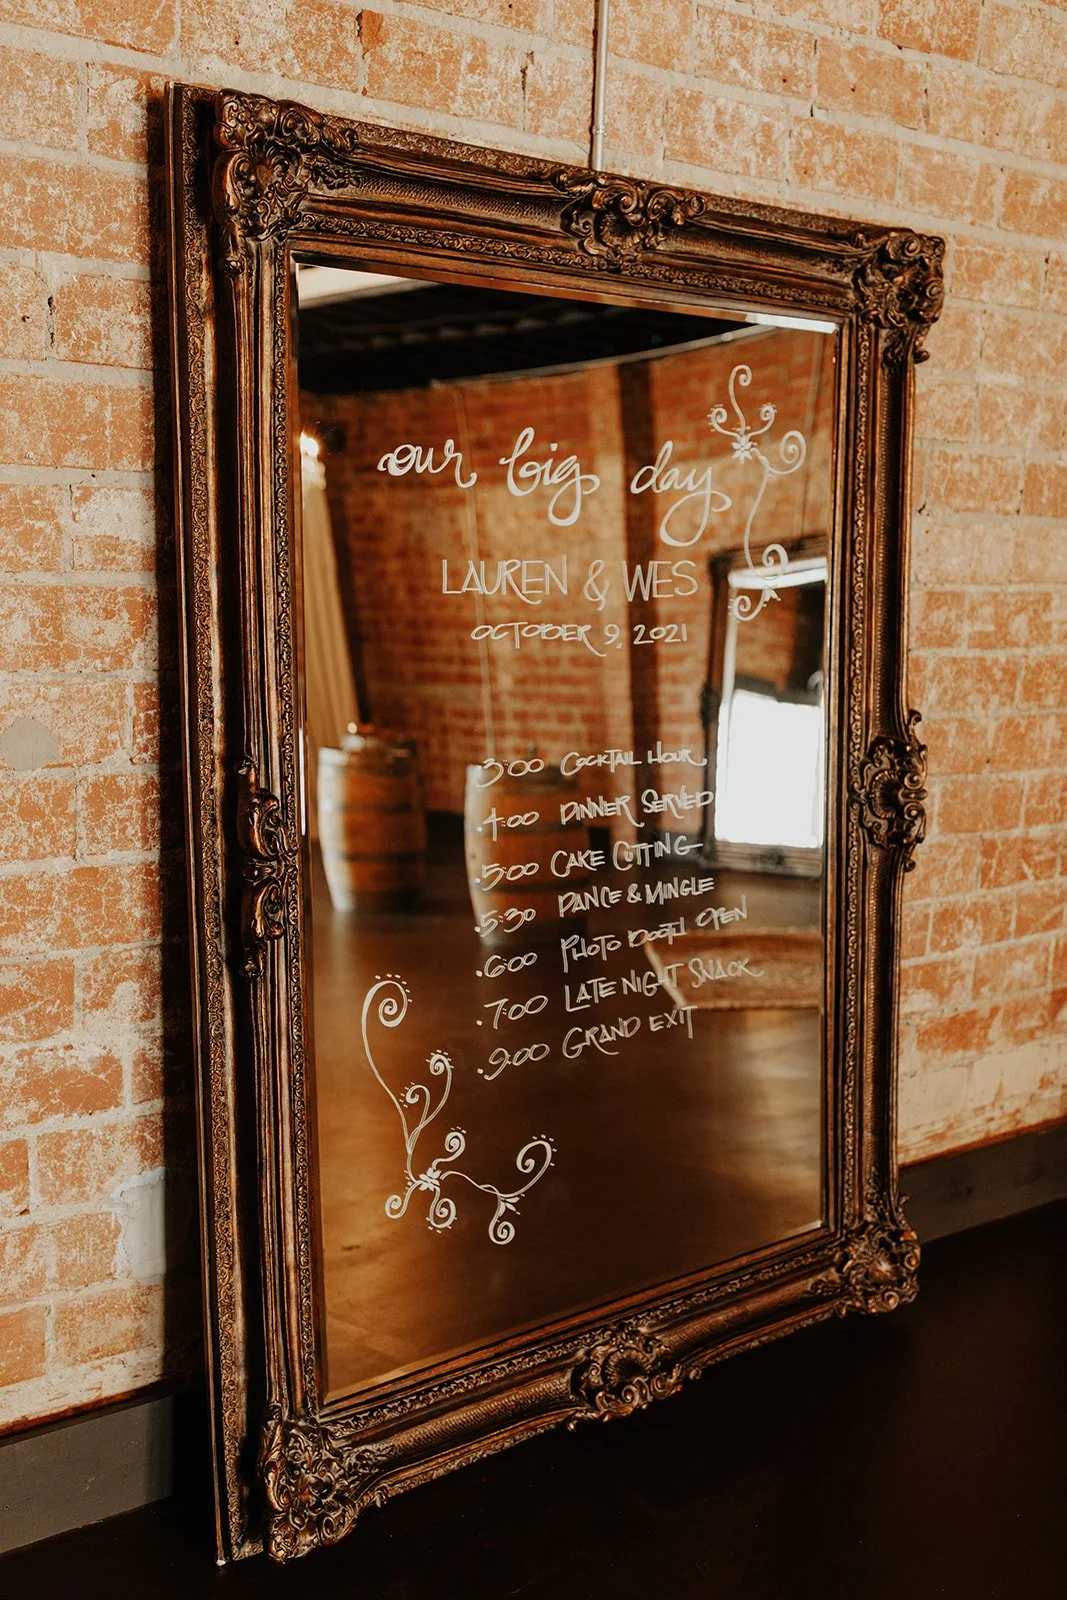 our big day
LAUREN & WES
OCTOBER 9, 2021
3:00 COCKTAIL HOUR
4:00 DINNER SERVED
5:00 CAKE CUTTING
5:30 DANCE & MINGLE
6:00 PHOTO BOOTH OPEN
7:00 LATE NIGHT SNACK
9:00 GRAND EXIT